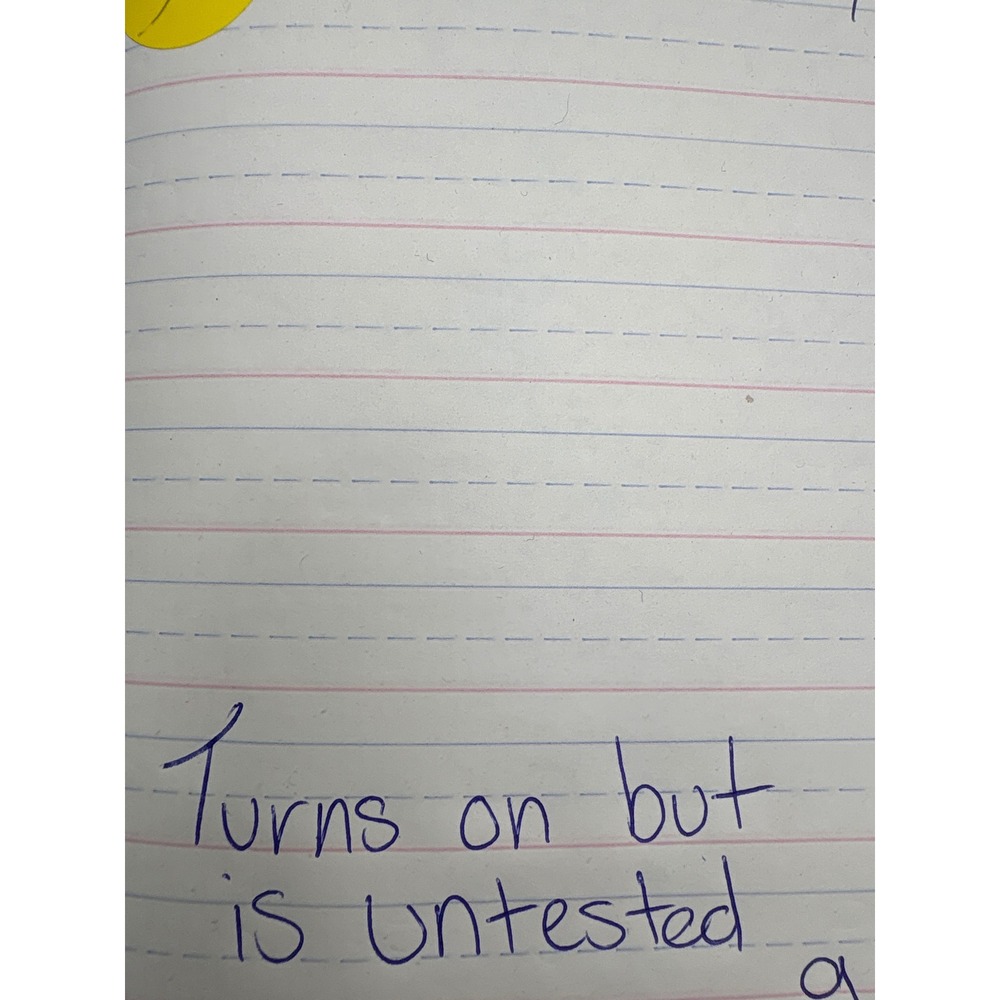 Turns on but
is untested